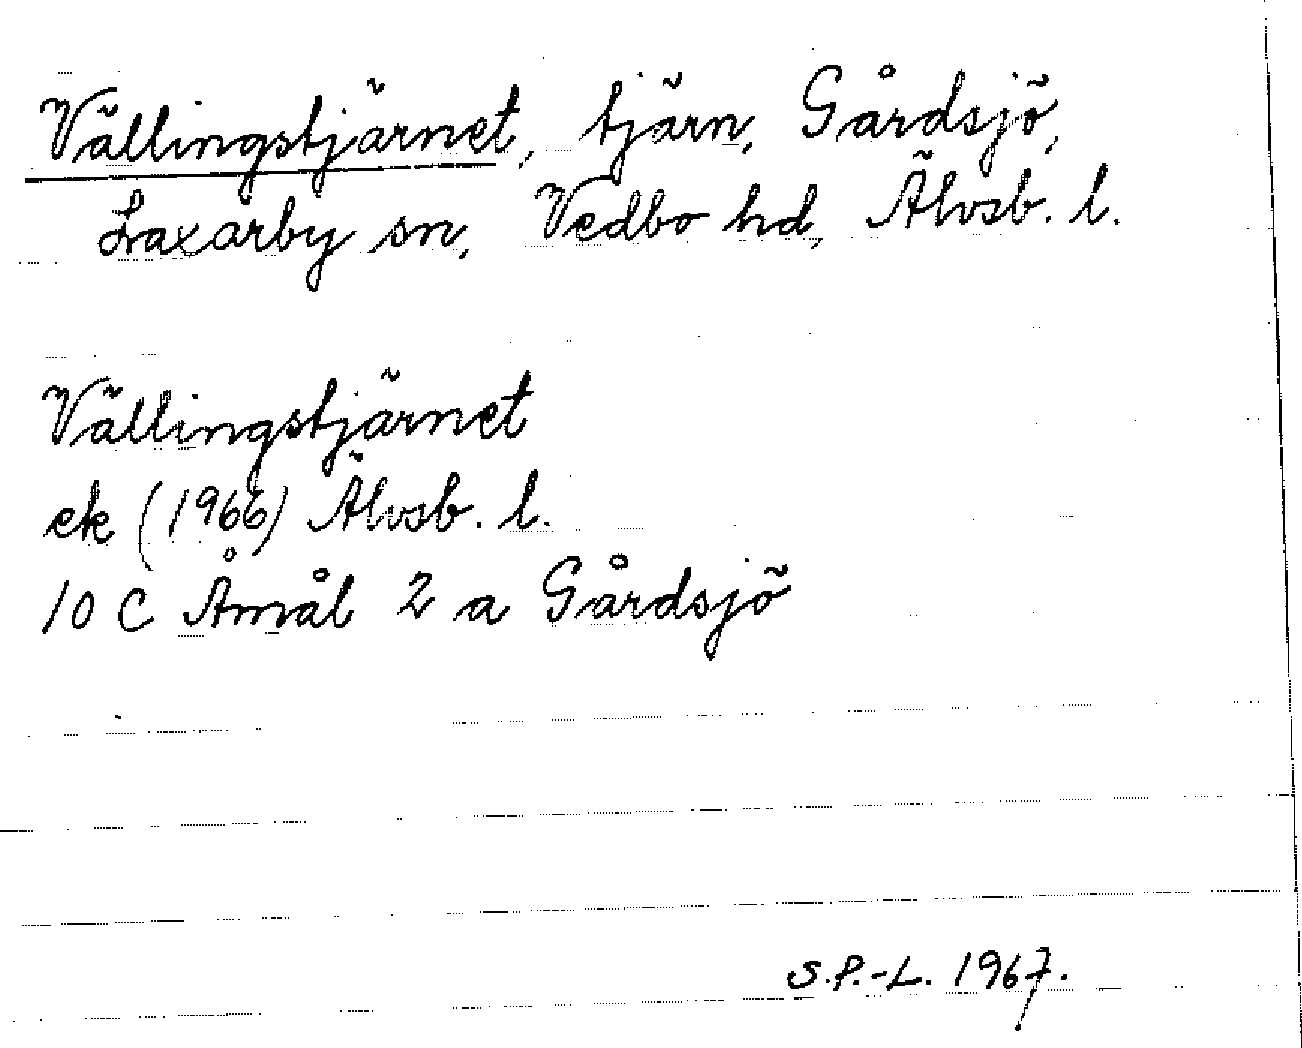 Vällingstjärnet, tjärn, Gårdsjö,
Laxarby sn, Vedbo hd, Älvsb. l.
Vällingstjärnet
ek (1966) Älvsb. l.
10 C Åmål 2 a Gårdsjö
S.P.-L. 1967.